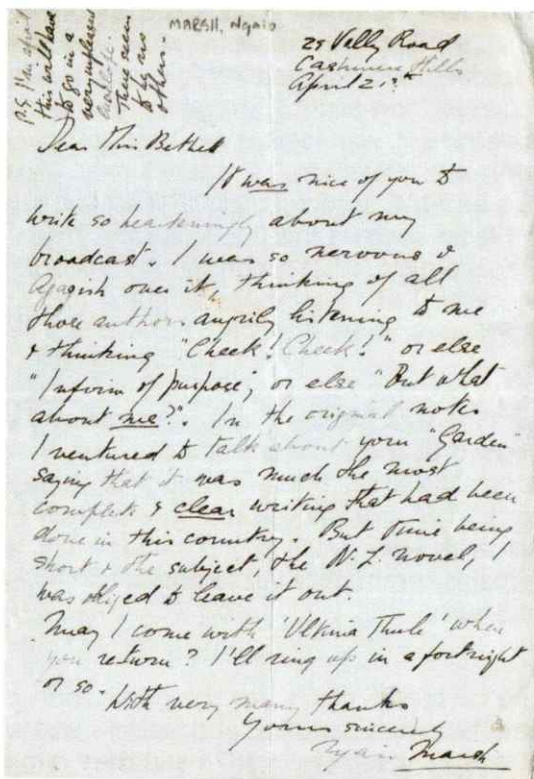 MARSH, Ngaio
P.S. I'm afraid
this will have
to go in a
very inferior
envelope.
There seem
to be no
others.
25 Valley Road
Cashmere Hills
April 21st
Dear Miss Bethell
It was nice of you to
write so hearteningly about my
broadcast. I was so nervous &
Agagish over it, thinking of all
those authors angrily listening to me
& thinking "Cheek! Cheek!" or else
"Infirm of purpose", or else "But what
about me?". In the original notes
I ventured to talk about your "Garden"
saying that it was much the most
complete & clear writing that had been
done in this country. But time being
short & the subject, the N.Z. novel, I
was obliged to leave it out.
May I come with 'Ultima Thule' when
you return? I'll ring up in a fortnight
or so.
With very many thanks
Yours sincerely
Ngaio Marsh